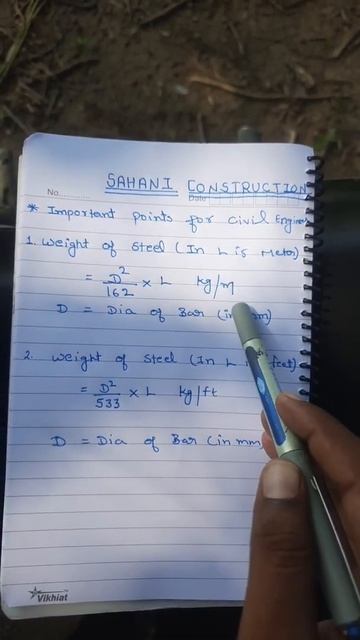 SAHANI CONSTRUCTION
No. Date
* Important points for civil Engineer
1. Weight of Steel (In L is Meter)
= D²/162 × L kg/m
D = Dia of Bar (in mm)
2. Weight of Steel (In L is feet)
= D²/533 × L kg/ft
D = Dia of Bar (in mm)
Vikhiat